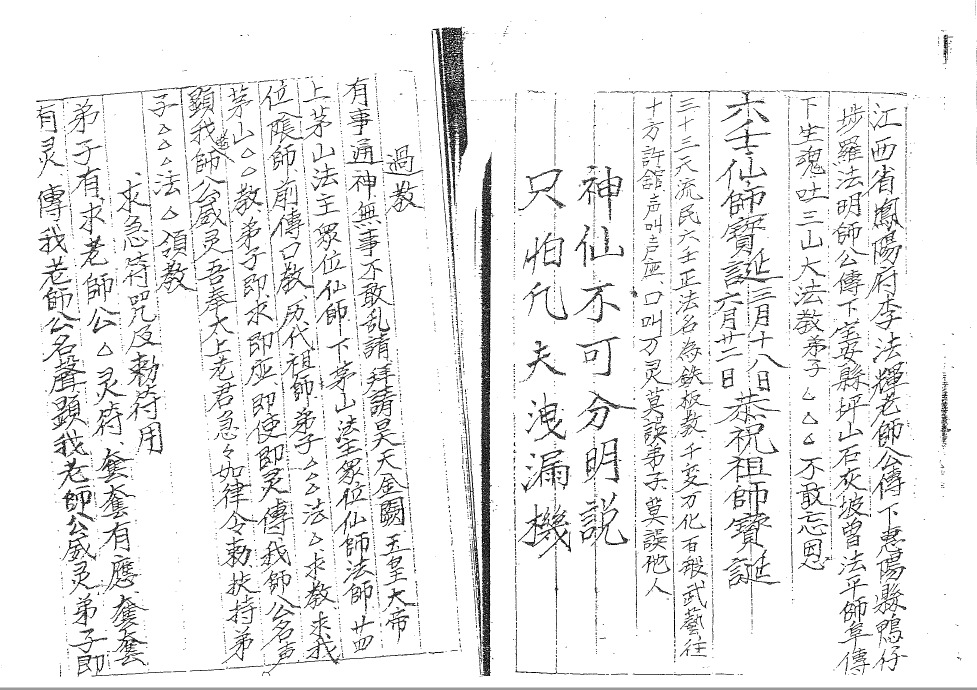 江西省鳳陽府李法輝老師公傳下惠陽縣鴨仔
埗羅法明師公傳下宝安縣坪山石灰坡曾法平師阜傳
下生魂吐三山大法教弟子△△△不敢忘恩
六壬仙師寶誕三月十八日六月廿二日恭祝祖師寶誕
三十三天流民六壬正法名為鉄板教千变万化百般武藝往
十方許舘声叫声应口叫万灵莫誤弟子莫誤他人
神仙不可分明説
只怕凡夫洩漏機
過教
有事通神無事不敢乱請拜請昊天金闕玉皇大帝
上茅山法主眾位仙師下茅山法主眾位仙師法師廿四
位張師前傳口教历代祖師弟子△△法△求教求我
茅山△△教弟子即求即应即使即灵傳我師公名声
顯我師公威灵吾奉太上老君急々如律令勅扶持弟
子△△△法△領教
求急符咒及勅符用
弟子有求老師公△灵符奎奎有應奎奎
有灵傳我老師公名聲顯我老師公威灵弟子即